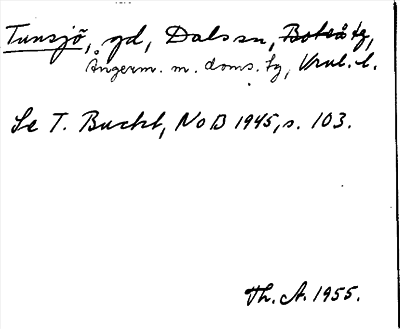 Tunsjö, gd, Dals sn, Boteå tg,
Ångerm. m. doms. tg, Vnl. l.
Se T. Bucht, NoB 1945, s. 103.
Th. A. 1955.